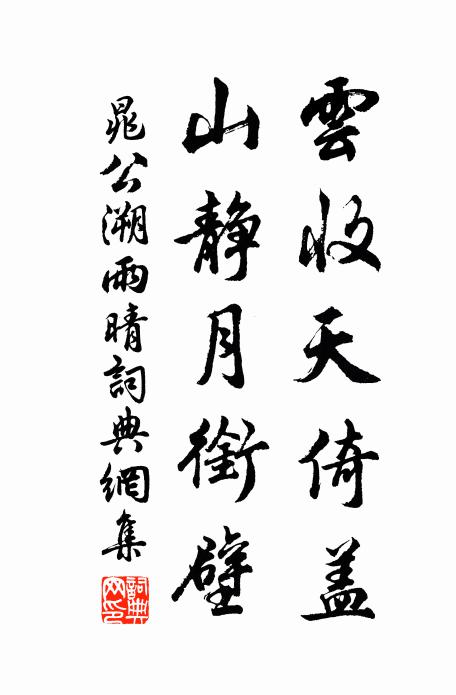 雲收天倚盖
山静月銜璧
晁公溯雨晴詞典網集
詞典网印